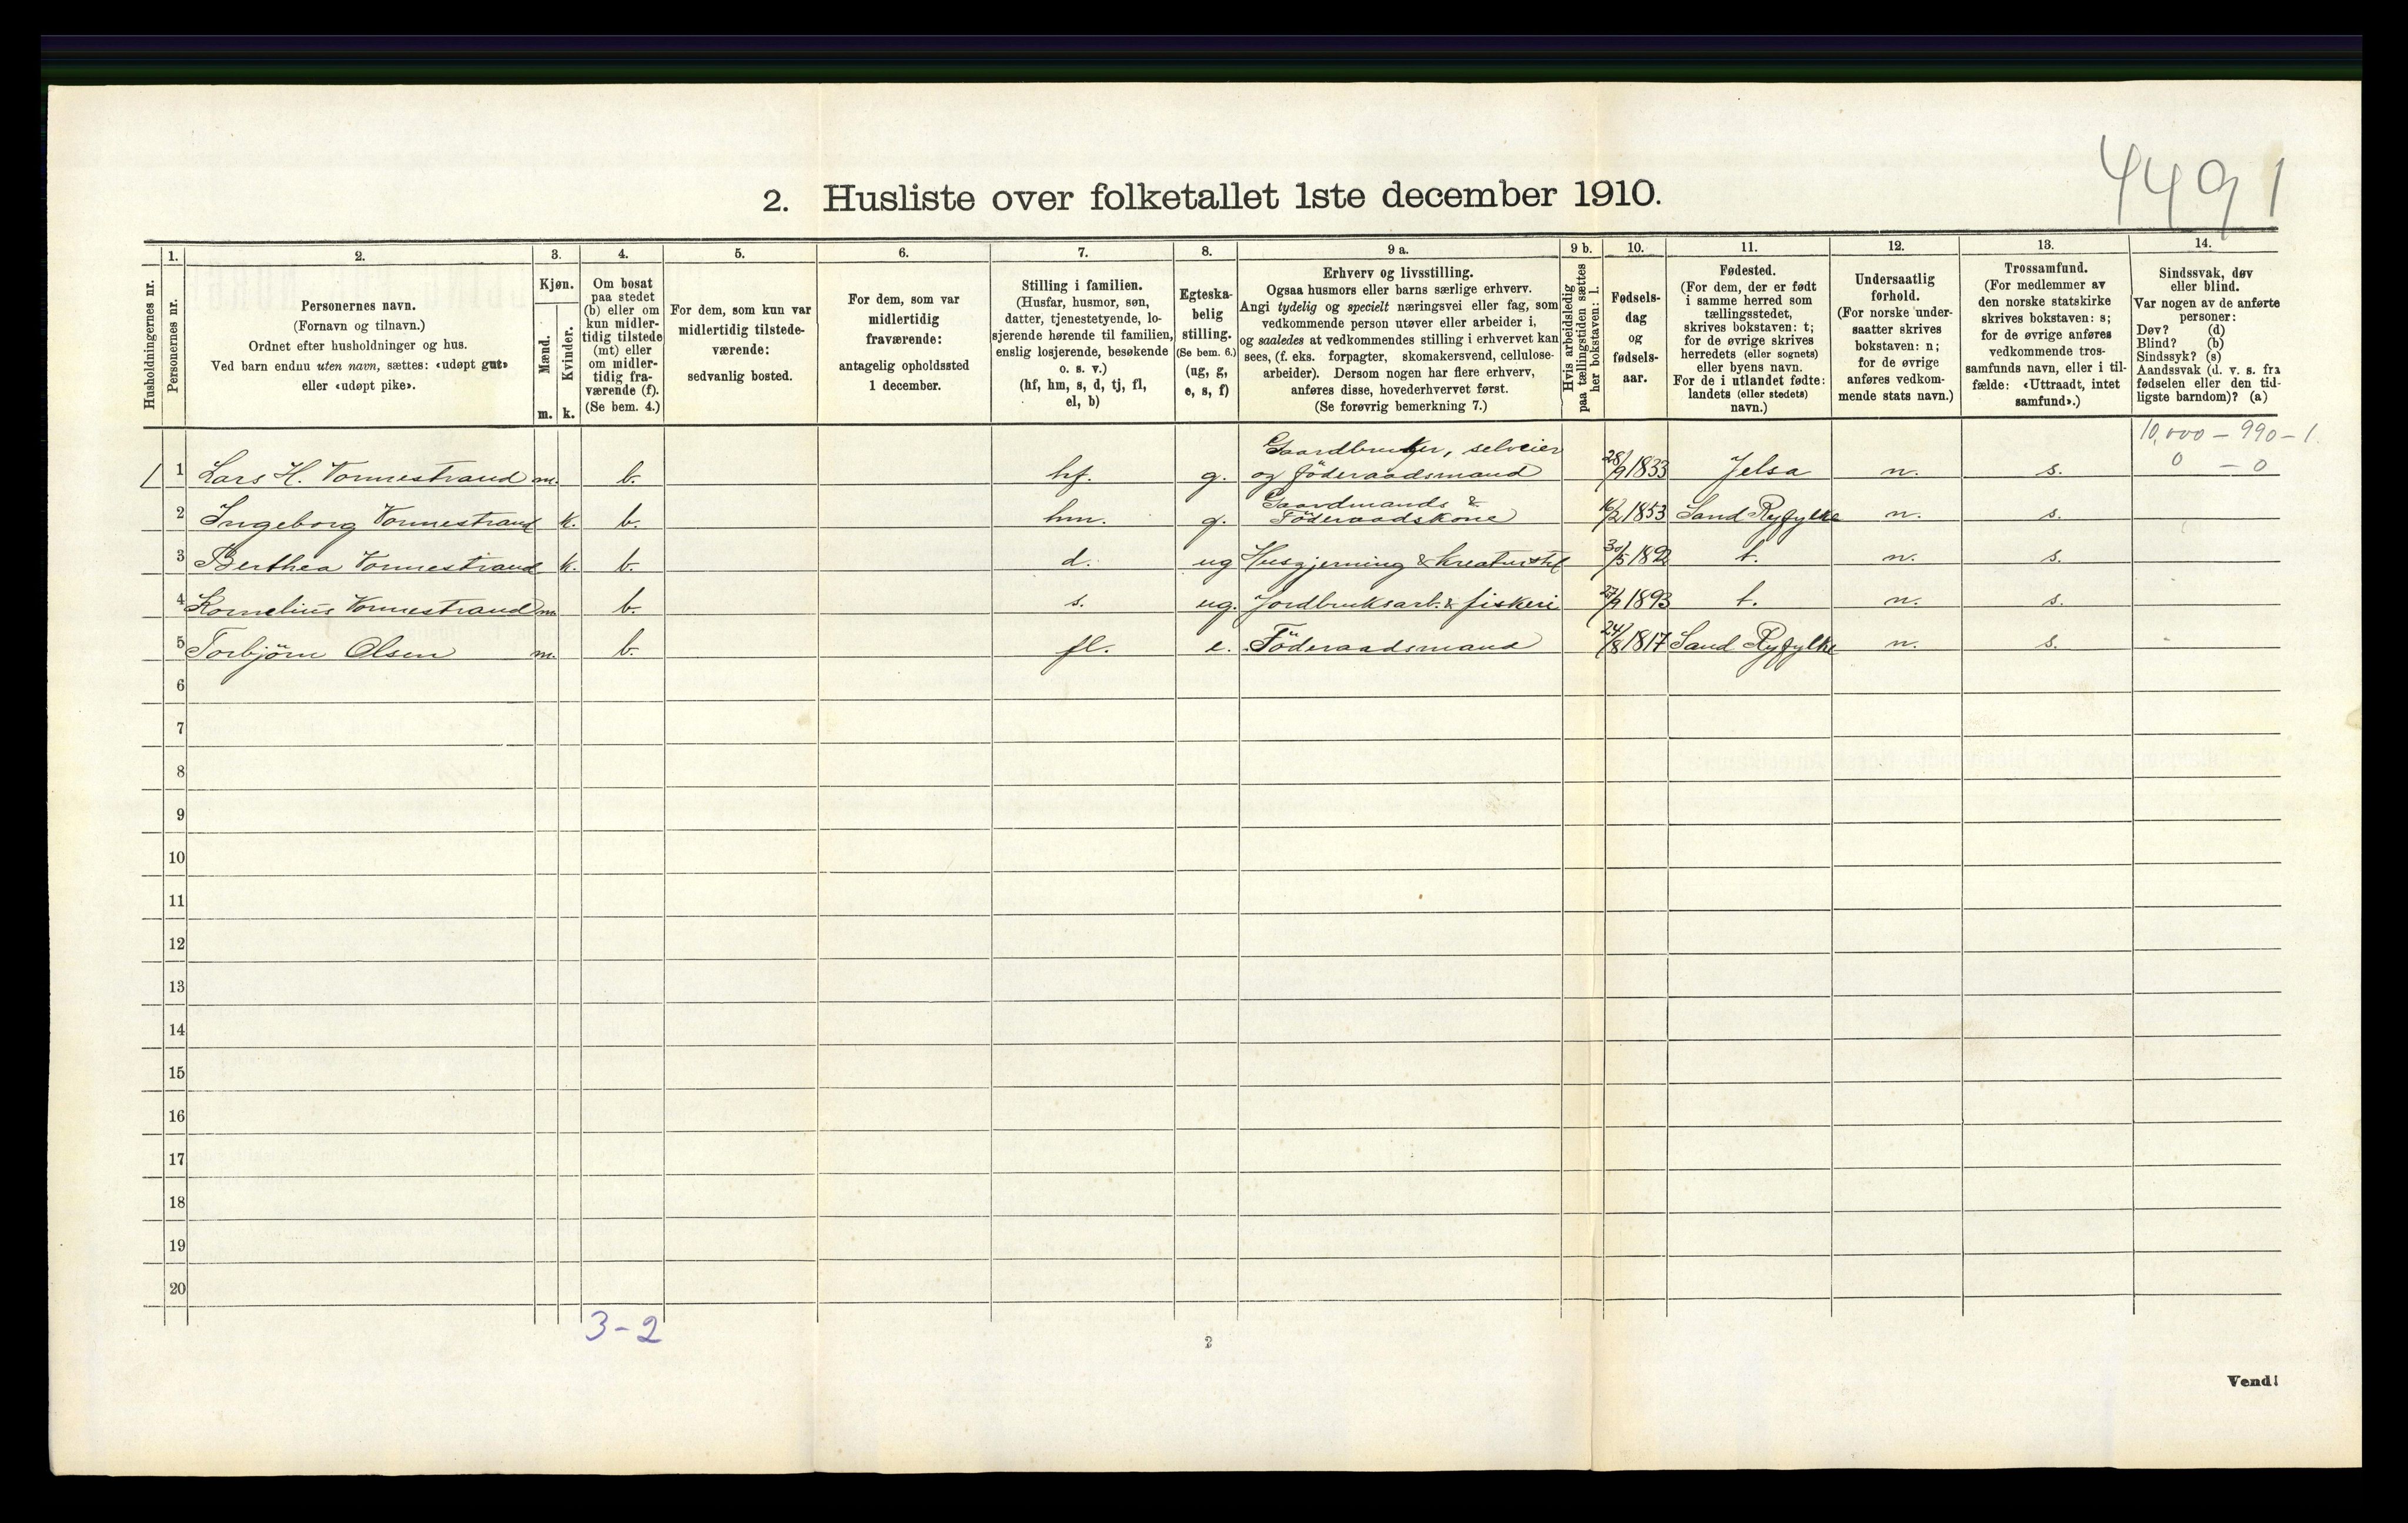 4491
2. Husliste over folketallet 1ste december 1910.
Husholdningernes nr.
1.
Personernes nr.
2.
Personernes navn.
(Fornavn og tilnavn.)
Ordnet efter husholdninger og hus.
Ved barn endnu uten navn, sættes: «udøpt gut»
eller «udøpt pike».
3.
Kjøn.
Mænd.
m.
Kvinder.
k.
4.
Om bosat
paa stedet
(b) eller om
kun midler-
tidig tilstede
(mt) eller
om midler-
tidig fra-
værende (f).
(Se bem. 4.)
5.
For dem, som kun var
midlertidig tilstede-
værende:
sedvanlig bosted.
6.
For dem, som var
midlertidig
fraværende:
antagelig opholdssted
1 december.
7.
Stilling i familien.
(Husfar, husmor, søn,
datter, tjenestetyende, lo-
sjerende hørende til familien,
enslig losjerende, besøkende
o. s. v.)
(hf, hm, s, d, tj, fl,
el, b)
8.
Egteska-
belig
stilling.
(Se bem. 6.)
(ug, g,
e, s, f)
9 a.
Erhverv og livsstilling.
Ogsaa husmors eller barns særlige erhverv.
Angi tydelig og specielt næringsvei eller fag, som
vedkommende person utøver eller arbeider i,
og saaledes at vedkommendes stilling i erhvervet kan
sees, (f. eks. forpagter, skomakersvend, cellulose-
arbeider). Dersom nogen har flere erhverv,
anføres disse, hovederhvervet først.
(Se forøvrig bemerkning 7.)
9 b.
Hvis arbeidsledig
paa tællingstiden sættes
her bokstaven: l.
10.
Fødsels-
dag
og
fødsels-
aar.
11.
Fødested.
(For dem, der er født
i samme herred som
tællingsstedet,
skrives bokstaven: t;
for de øvrige skrives
herredets (eller sognets)
eller byens navn.
For de i utlandet fødte:
landets (eller stedets)
navn.)
12.
Undersaatlig
forhold.
(For norske under-
saatter skrives
bokstaven: n;
for de øvrige
anføres vedkom-
mende stats navn.)
13.
Trossamfund.
(For medlemmer av
den norske statskirke
skrives bokstaven: s;
for de øvrige anføres
vedkommende tros-
samfunds navn, eller i til-
fælde: «Uttraadt, intet
samfund».)
14.
Sindssvak, døv
eller blind.
Var nogen av de anførte
personer:
Døv? (d)
Blind? (b)
Sindssyk? (s)
Aandssvak (d. v. s. fra
fødselen eller den tid-
ligste barndom)? (a)
10,000 - 990 - 1.
0 - 0
Gaardbruker, selveier
1 1 Lars H. Vonnestrand m. b. hf. g. og föderaadsmand 28/9 1833 Jelsa n. s.
Gaardmands &
2 Ingeborg Vonnestrand k. b. hm. g. Föderaadskone 16/2 1853 Sand Ryfylke n. s.
3 Berthea Vonnestrand k. b. d. ug Husgjerning & kreaturstel 30/5 1892 t. n. s.
4 Kornelius Vonnestrand m b. s. ug. Jordbruksarb. & fiskeri 27/9 1893 t. n. s.
5 Torbjörn Olsen m. b. fl. e. Föderaadsmand 24/8 1817 Sand Ryfylke n. s.
6
7
8
9
10
11
12
13
14
15
16
17
18
19
20
3-2
2
Vend!